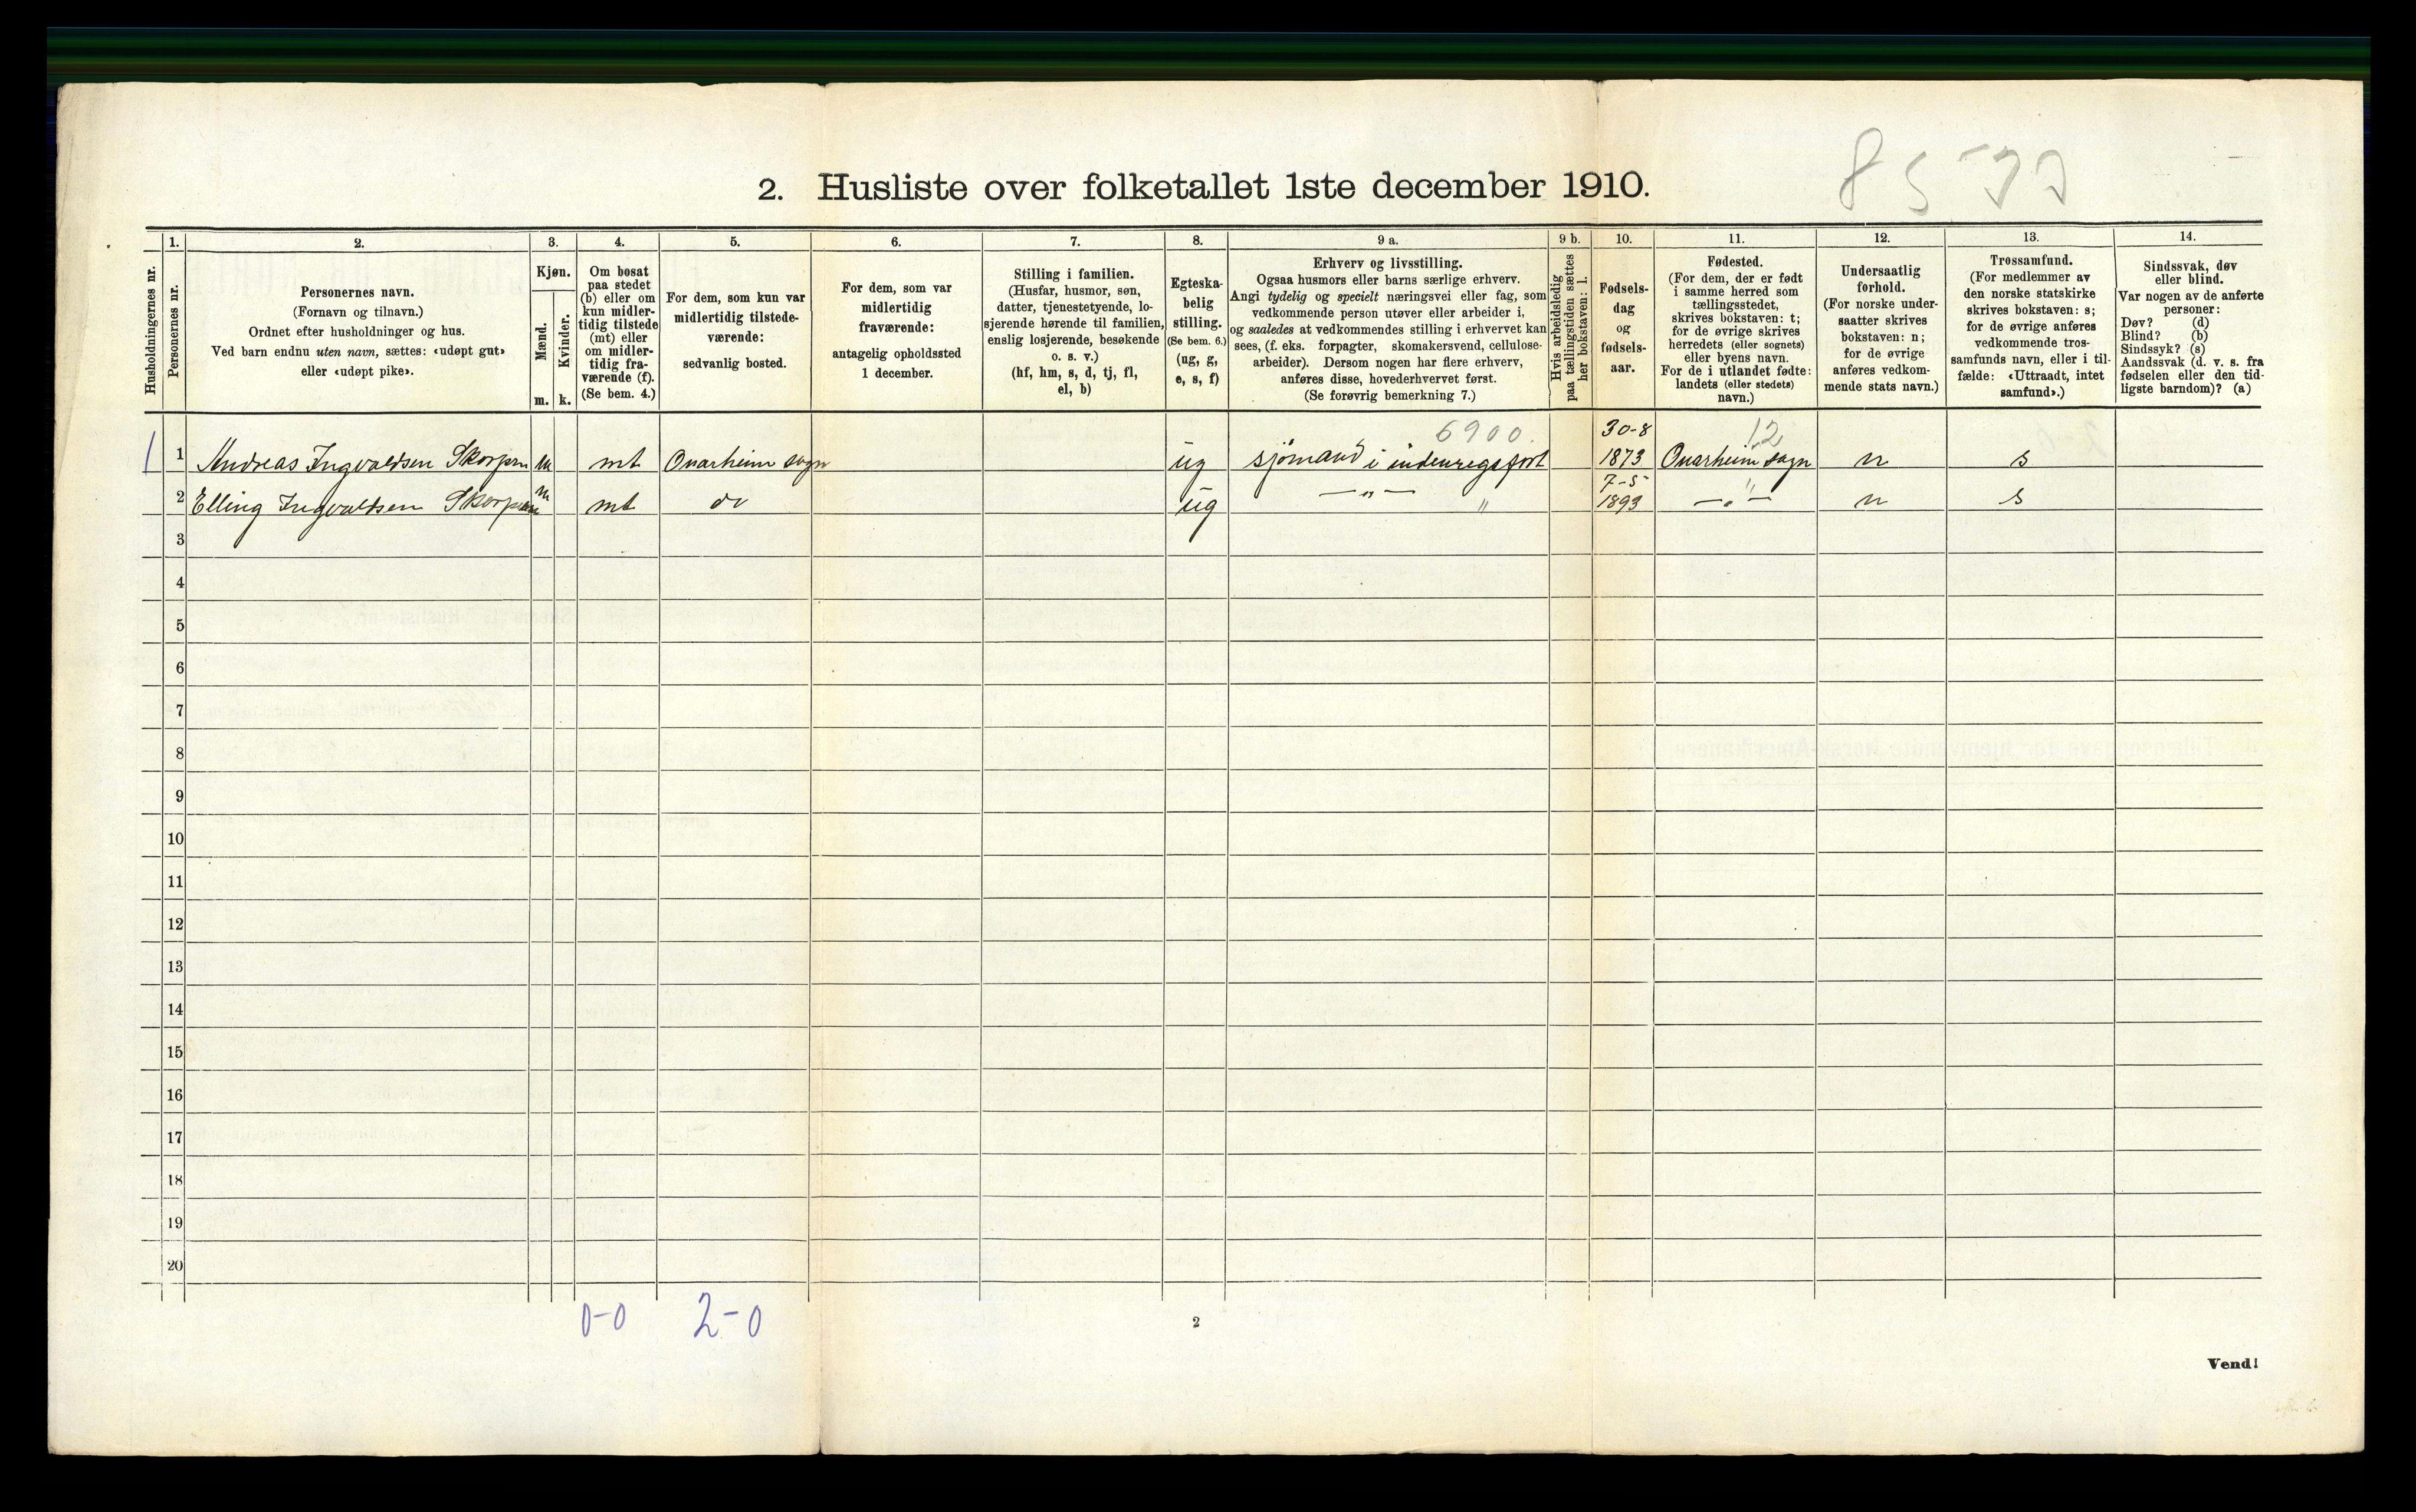 8533
2. Husliste over folketallet 1ste december 1910.
Husholdningernes nr.
1.
Personernes nr.
2.
Personernes navn.
(Fornavn og tilnavn.)
Ordnet efter husholdninger og hus.
Ved barn endnu uten navn, sættes: «udøpt gut»
eller «udøpt pike».
3.
Kjøn.
Mænd.
Kvinder.
m. k.
4.
Om bosat
paa stedet
(b) eller om
kun midler-
tidig tilstede
(mt) eller
om midler-
tidig fra-
værende (f).
(Se bem. 4.)
5.
For dem, som kun var
midlertidig tilstede-
værende:
sedvanlig bosted.
6.
For dem, som var
midlertidig
fraværende:
antagelig opholdssted
1 december.
7.
Stilling i familien.
(Husfar, husmor, søn,
datter, tjenestetyende, lo-
sjerende hørende til familien,
enslig losjerende, besøkende
o. s. v.)
(hf, hm, s, d, tj, fl,
el, b)
8.
Egteska-
belig
stilling.
(Se bem. 6.)
(ug, g,
e, s, f)
9 a.
Erhverv og livsstilling.
Ogsaa husmors eller barns særlige erhverv.
Angi tydelig og specielt næringsvei eller fag, som
vedkommende person utøver eller arbeider i,
og saaledes at vedkommendes stilling i erhvervet kan
sees, (f. eks. forpagter, skomakersvend, cellulose-
arbeider). Dersom nogen har flere erhverv,
anføres disse, hovederhvervet først.
(Se forøvrig bemerkning 7.)
9 b.
Hvis arbeidsledig
paa tællingstiden sættes
her bokstaven: l.
10.
Fødsels-
dag
og
fødsels-
aar.
11.
Fødested.
(For dem, der er født
i samme herred som
tællingsstedet,
skrives bokstaven: t;
for de øvrige skrives
herredets (eller sognets)
eller byens navn.
For de i utlandet fødte:
landets (eller stedets)
navn.)
12.
Undersaatlig
forhold.
(For norske under-
saatter skrives
bokstaven: n;
for de øvrige
anføres vedkom-
mende stats navn.)
13.
Trossamfund.
(For medlemmer av
den norske statskirke
skrives bokstaven: s;
for de øvrige anføres
vedkommende tros-
samfunds navn, eller i til-
fælde: «Uttraadt, intet
samfund».)
14.
Sindssvak, døv
eller blind.
Var nogen av de anførte
personer:
Døv? (d)
Blind? (b)
Sindssyk? (s)
Aandssvak (d. v. s. fra
fødselen eller den tid-
ligste barndom)? (a)
6900. 30-8 12
1 1 Andreas Ingvaldsen Skorpen m mt Onarheim sogn ug sjømand i indenrigsfart 1873 Onarheim sogn n s
7-5
2 Elling Ingvaldsen Skorpen m mt do ug —„— „ 1893 —„— n s
3
4
5
6
7
8
9
10
11
12
13
14
15
16
17
18
19
20
0-0 2-0
2
Vend!